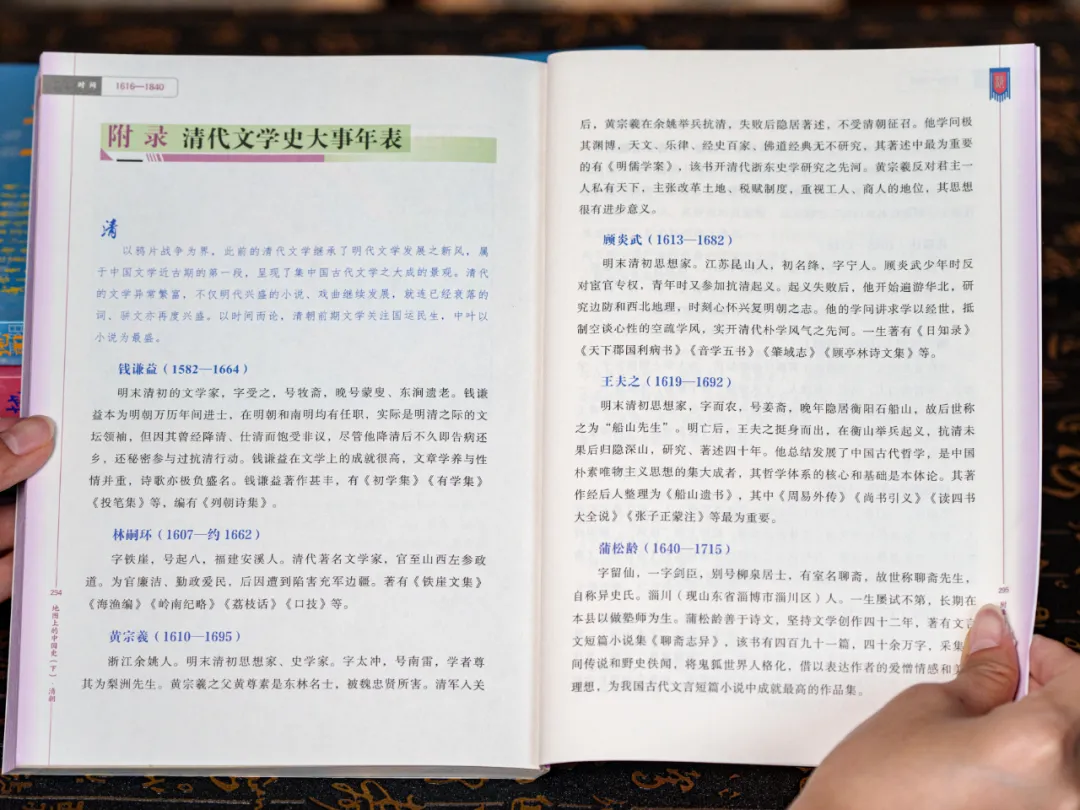 时间
1616—1840
附录 清代文学史大事年表
清
以鸦片战争为界，此前的清代文学继承了明代文学发展之新风，属
于中国文学近古期的第一段，呈现了集中国古代文学之大成的景观。清代
的文学异常繁富，不仅明代兴盛的小说、戏曲继续发展，就连已经衰落的
词、骈文亦再度兴盛。以时间而论，清朝前期文学关注国运民生，中叶以
小说为最盛。
钱谦益（1582—1664）
明末清初的文学家，字受之，号牧斋，晚号蒙叟、东涧遗老。钱谦
益本为明朝万历年间进士，在明朝和南明均有任职，实际是明清之际的文
坛领袖，但因其曾经降清、仕清而饱受非议，尽管他降清后不久即告病还
乡，还秘密参与过抗清行动。钱谦益在文学上的成就很高，文章学养与性
情并重，诗歌亦极负盛名。钱谦益著作甚丰，有《初学集》《有学集》
《投笔集》等，编有《列朝诗集》。
林嗣环（1607—约1662）
字铁崖，号起八，福建安溪人。清代著名文学家，官至山西左参政
道。为官廉洁，勤政爱民，后因遭到陷害充军边疆。著有《铁崖文集》
《海渔编》《岭南纪略》《荔枝话》《口技》等。
黄宗羲（1610—1695）
浙江余姚人。明末清初思想家、史学家。字太冲，号南雷，学者尊
其为梨洲先生。黄宗羲之父黄尊素是东林名士，被魏忠贤所害。清军入关
294
地图上的中国史（下）·清朝
后，黄宗羲在余姚举兵抗清，失败后隐居著述，不受清朝征召。他学问极
其渊博，天文、乐律、经史百家、佛道经典无不研究，其著述中最为重要
的有《明儒学案》，该书开清代浙东史学研究之先河。黄宗羲反对君主一
人私有天下，主张改革土地、税赋制度，重视工人、商人的地位，其思想
很有进步意义。
顾炎武（1613—1682）
明末清初思想家。江苏昆山人，初名绛，字宁人。顾炎武少年时反
对宦官专权，青年时又参加抗清起义。起义失败后，他开始遍游华北，研
究边防和西北地理，时刻心怀兴复明朝之志。他的学问讲求学以经世，抵
制空谈心性的空疏学风，实开清代朴学风气之先河。一生著有《日知录》
《天下郡国利病书》《音学五书》《肇域志》《顾亭林诗文集》等。
王夫之（1619—1692）
明末清初思想家，字而农，号姜斋，晚年隐居衡阳石船山，故后世称
之为“船山先生”。明亡后，王夫之挺身而出，在衡山举兵起义，抗清未
果后归隐深山，研究、著述四十年。他总结发展了中国古代哲学，是中国
朴素唯物主义思想的集大成者，其哲学体系的核心和基础是本体论。其著
作经后人整理为《船山遗书》，其中《周易外传》《尚书引义》《读四书
大全说》《张子正蒙注》等最为重要。
蒲松龄（1640—1715）
字留仙，一字剑臣，别号柳泉居士，有室名聊斋，故世称聊斋先生，
自称异史氏。淄川（现山东省淄博市淄川区）人。一生屡试不第，长期在
本县以做塾师为生。蒲松龄善于诗文，坚持文学创作四十二年，著有文言
文短篇小说集《聊斋志异》，该书有四百九十一篇，四十余万字，采集
间传说和野史佚闻，将鬼狐世界人格化，借以表达作者的爱憎情感和美
理想，为我国古代文言短篇小说中成就最高的作品集。
295